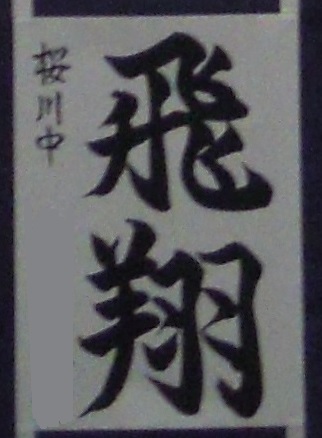 飛翔
桜川中